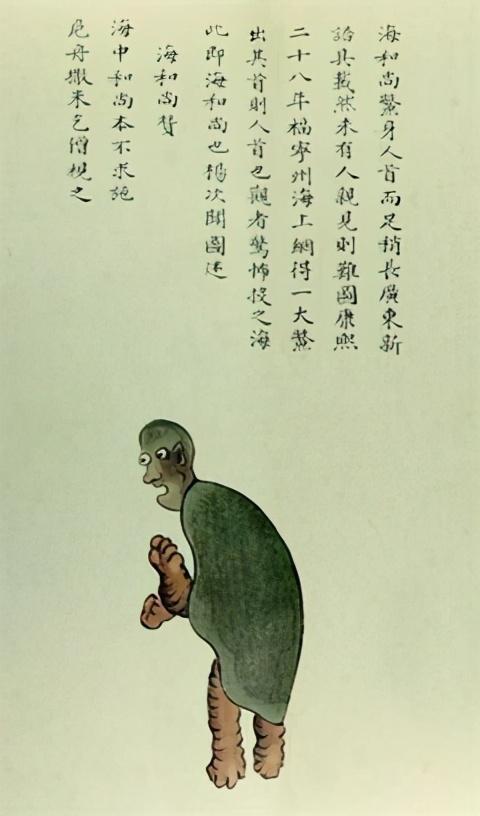 海和尚鱉身人首而足稍長廣東新
語具載然未有人親見則難圖康熙
二十八年福寧州海上網得一大鱉
出其首則人首也觀者驚怖投之海
此即海和尚也楊次聞圖述
海和尚贊
海中和尚本不求施
危舟撒米乞僧視之